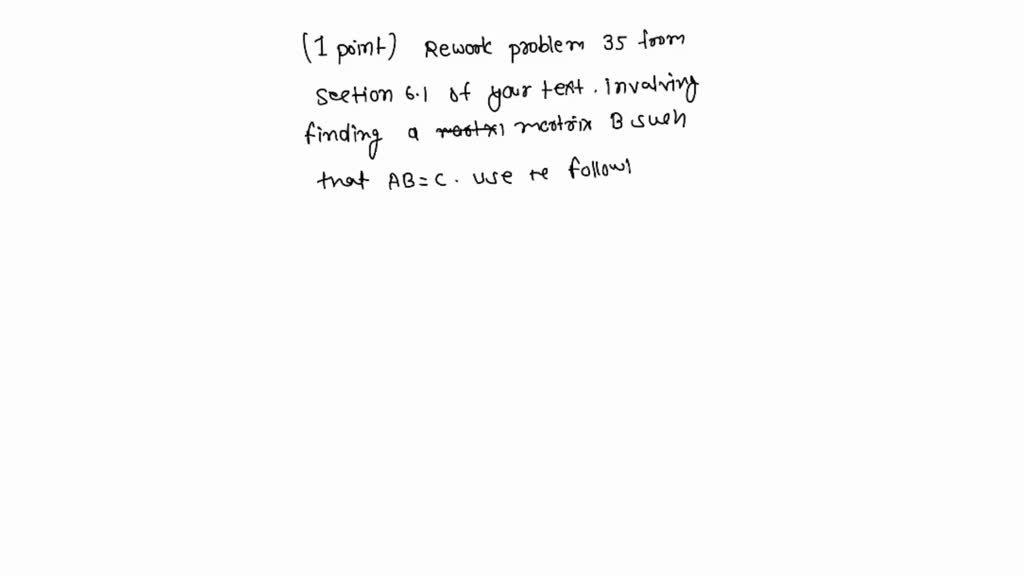 (1 point) Rework problem 35 from
section 6.1 of your text. involving
finding a matrix B such
that AB=C. use te follow